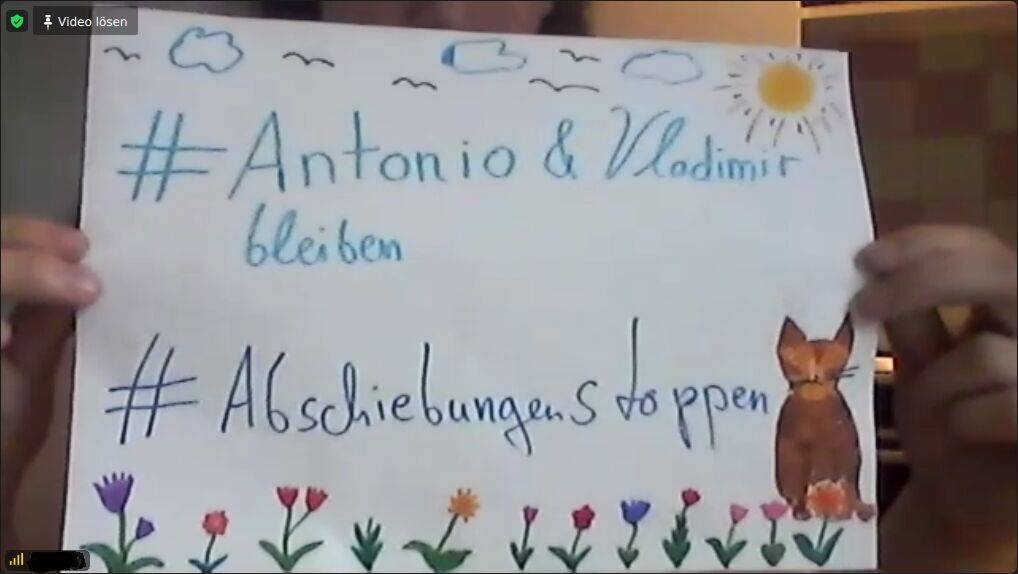 Video lösen
#Antonio & Vladimir
bleiben
#Abschiebungen stoppen